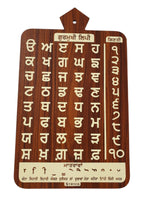 ਗੁਰਮੁਖੀ ਲਿਪੀ
ੳ ਅ ੲ ਸ ਹ
ਕ ਖ ਗ ਘ ਙ
ਚ ਛ ਜ ਝ ਞ
ਟ ਠ ਡ ਢ ਣ
ਤ ਥ ਦ ਧ ਨ
ਪ ਫ ਬ ਭ ਮ
ਯ ਰ ਲ ਵ ੜ
ਸ਼ ਖ਼ ਗ਼ ਜ਼ ਫ਼
ਗਿਣਤੀ
੧
੨
੩
੪
੫
੬
੭
੮
੯
੧੦
ਮਾਤਰਾਵਾਂ